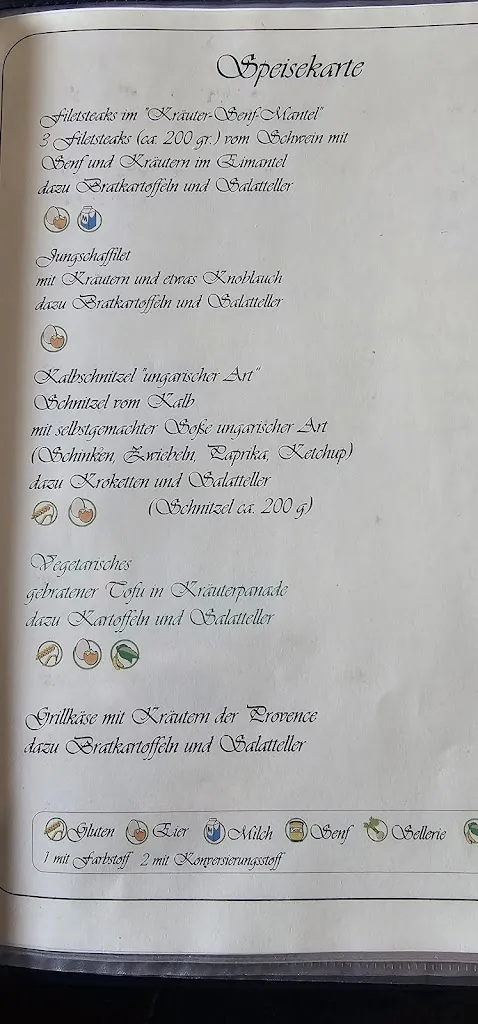 Speisekarte
Filetsteaks im "Kräuter-Senf-Mantel"
3 Filetsteaks (ca. 200 gr.) vom Schwein mit
Senf und Kräutern im Eimantel
dazu Bratkartoffeln und Salatteller
Jungschaffilet
mit Kräutern und etwas Knoblauch
dazu Bratkartoffeln und Salatteller
Kalbschnitzel "ungarischer Art"
Schnitzel vom Kalb
mit selbstgemachter Soße ungarischer Art
(Schinken, Zwiebeln, Paprika, Ketchup)
dazu Kroketten und Salatteller
(Schnitzel ca. 200 g)
Vegetarisches
gebratener Tofu in Kräuterpanade
dazu Kartoffeln und Salatteller
Grillkäse mit Kräutern der Provence
dazu Bratkartoffeln und Salatteller
Gluten Eier Milch Senf Sellerie
1 mit Farbstoff 2 mit Konversierungsstoff